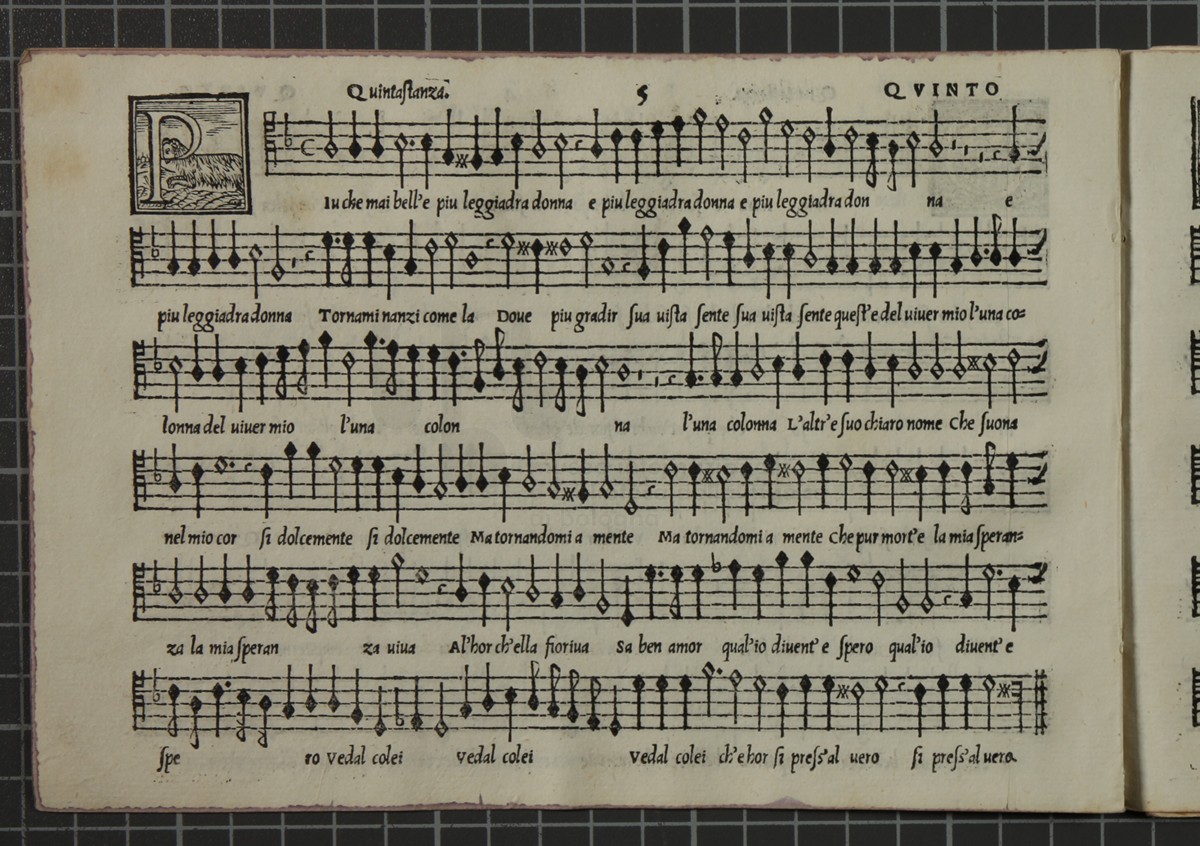 Quintastanza. 5 QVINTO
PIu che mai bell'e piu leggiadra donna e piu leggiadra donna e piu leggiadra don na e
piu leggiadra donna Tornami nanzi come la Doue piu gradir sua uista sente sua uista sente quest'e del uiuer mio l'una co=
lonna del uiuer mio l'una colon na l'una colonna L'altr'e suo chiaro nome Che suona
nel mio cor si dolcemente si dolcemente Ma tornandomi a mente Ma tornandomi a mente Che pur mort'e la mia speran=
za la mia speran za uiua Al'hor ch'ella fioriua Sa ben amor qual'io diuent'e spero qual'io diuent'e
spe ro Vedal colei Vedal colei Vedal colei ch'e hor si press'al uero si press'al uero.